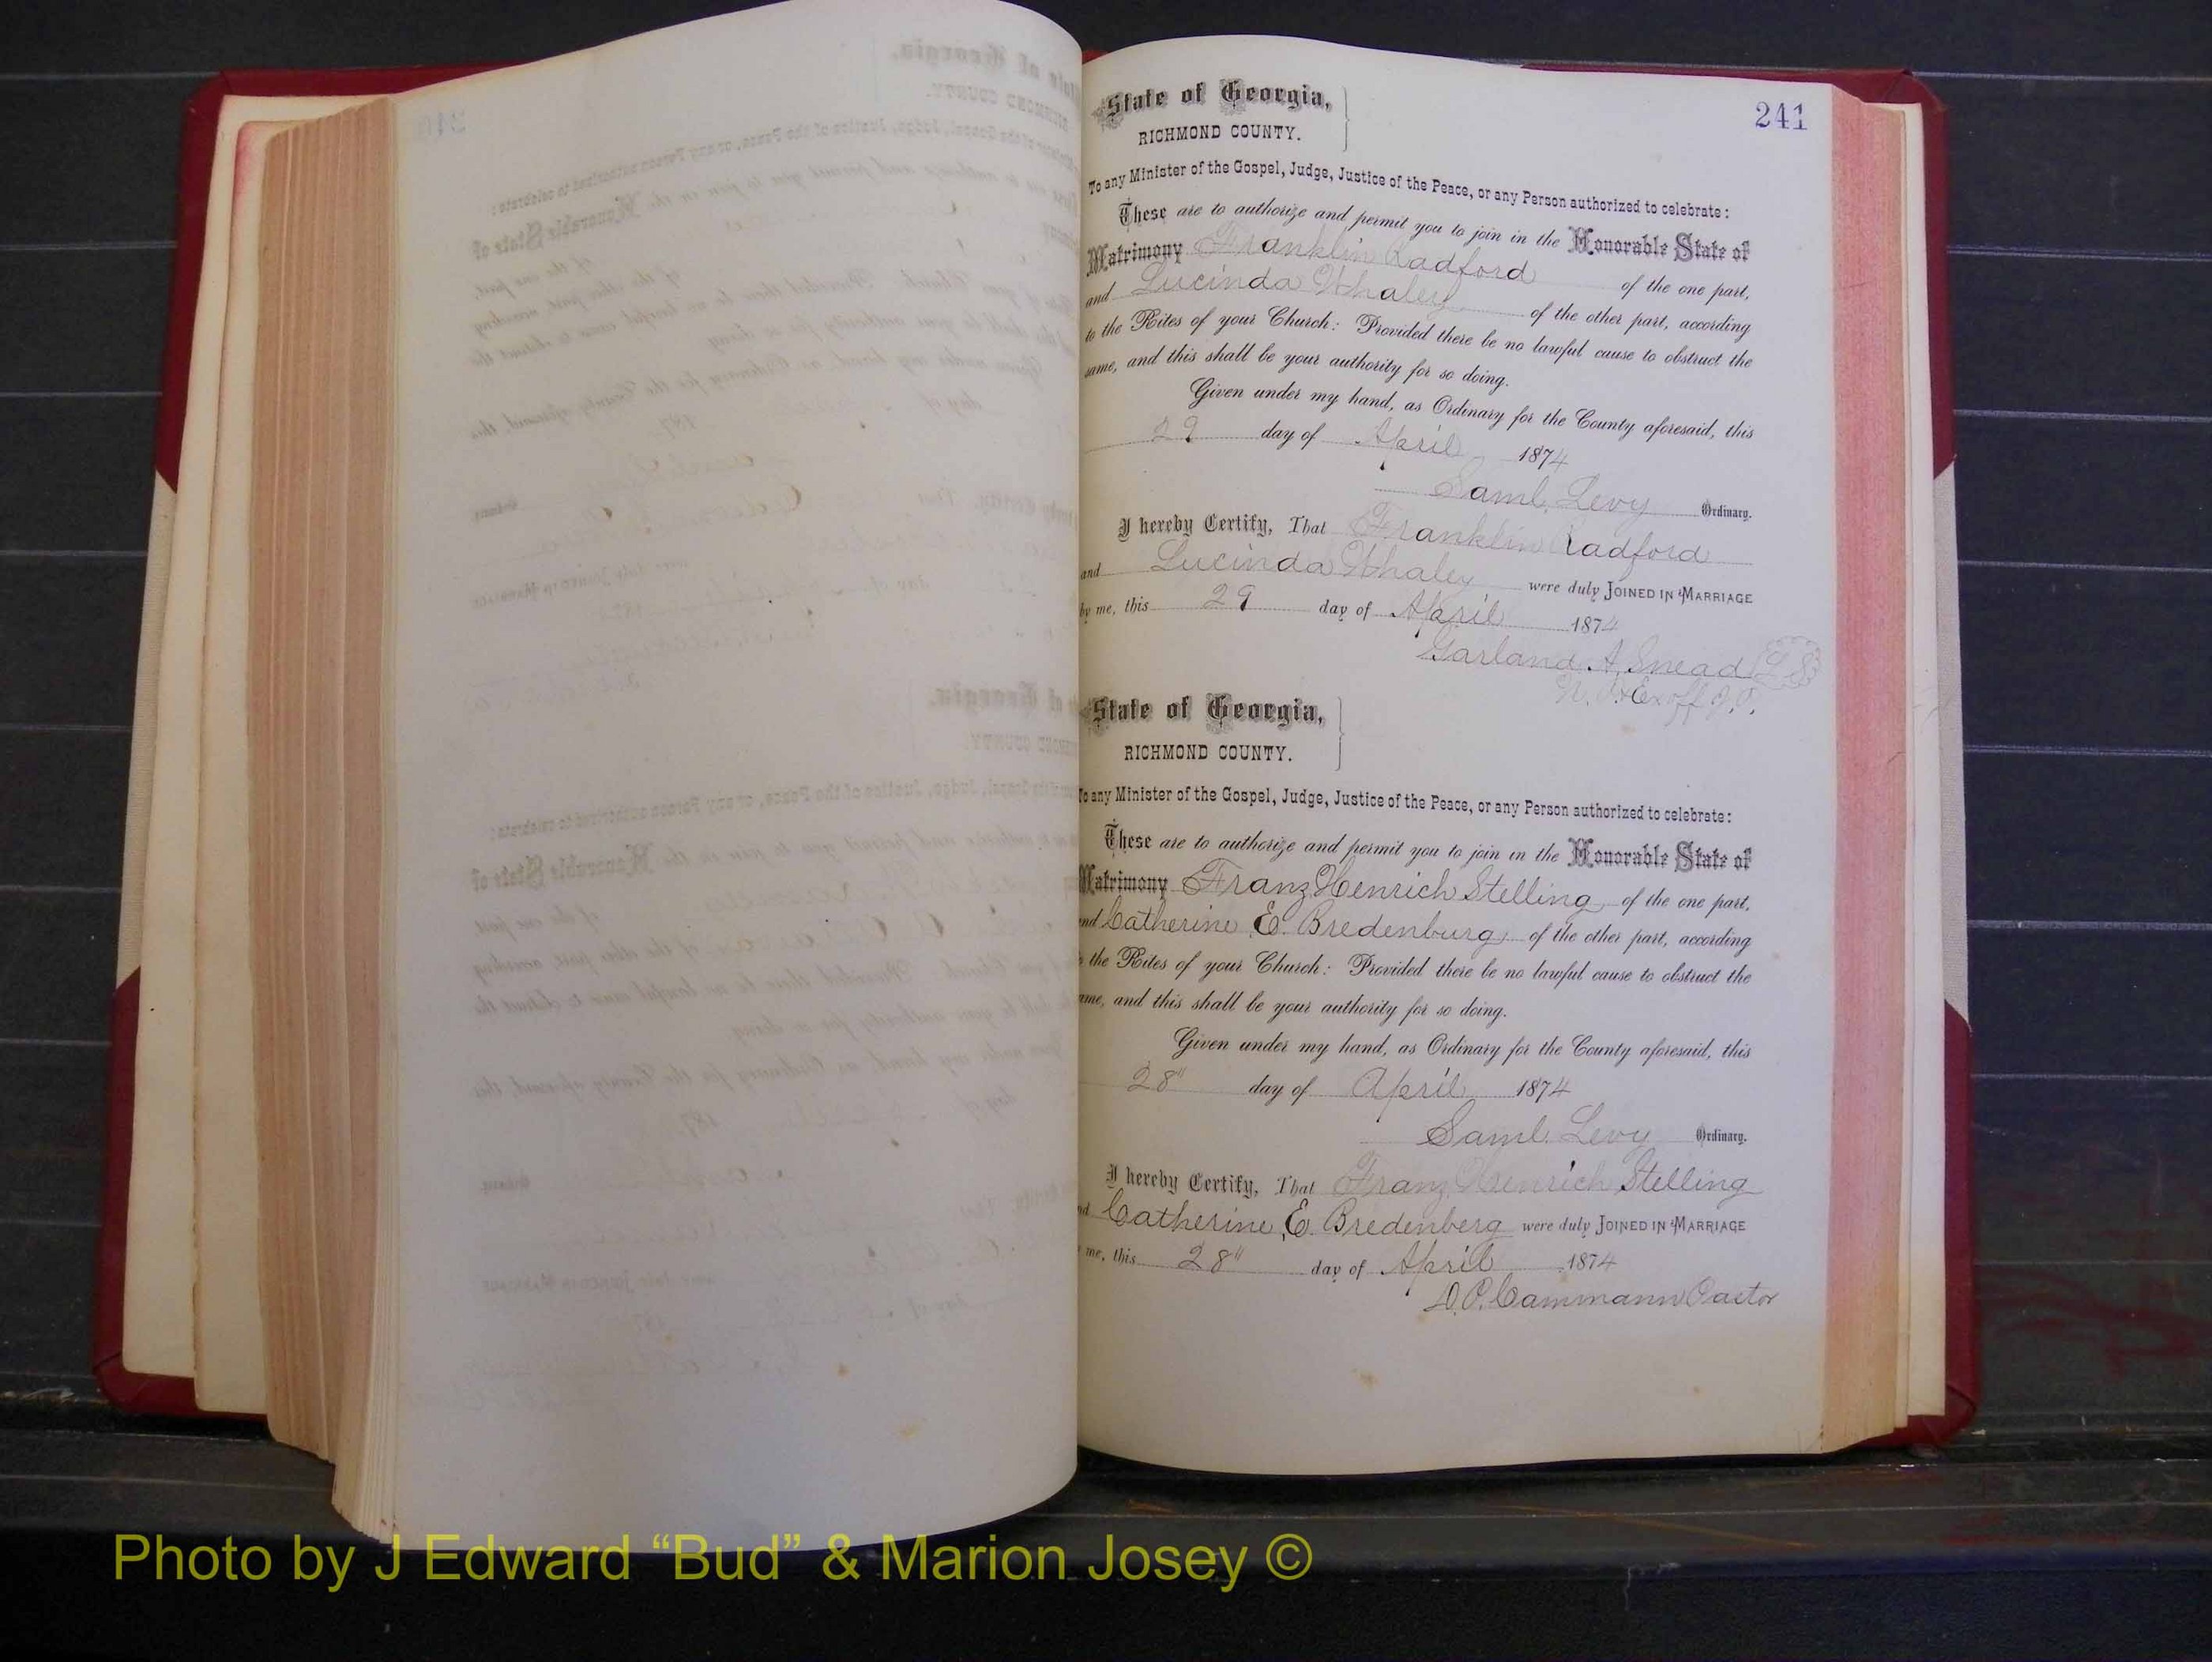 241
State of Georgia,
RICHMOND COUNTY.
To any Minister of the Gospel, Judge, Justice of the Peace, or any Person authorized to celebrate:
These are to authorize and permit you to join in the Honorable State of
Matrimony Franklin Radford of the one part,
and Lucinda Whaley of the other part, according
to the Rites of your Church: Provided there be no lawful cause to obstruct the
same, and this shall be your authority for so doing.
Given under my hand, as Ordinary for the County aforesaid, this
29 day of April 1874
Saml. Levy Ordinary.
I hereby Certify, That Franklin Radford
and Lucinda Whaley were duly JOINED IN MARRIAGE
by me, this 29 day of April 1874
Garland A. Snead L.S.
N.P. & Ex off J.P.
State of Georgia,
RICHMOND COUNTY.
To any Minister of the Gospel, Judge, Justice of the Peace, or any Person authorized to celebrate:
These are to authorize and permit you to join in the Honorable State of
Matrimony Franz Henrich Stelling of the one part,
and Catherine E. Bredenburg of the other part, according
the Rites of your Church: Provided there be no lawful cause to obstruct the
ame, and this shall be your authority for so doing.
Given under my hand, as Ordinary for the County aforesaid, this
28" day of April 1874
Saml. Levy Ordinary.
I hereby Certify, That Franz Henrich Stelling
nd Catherine, E. Bredenberg were duly JOINED IN MARRIAGE
me, this 28" day of April 1874
D.P. Cammann Pastor
Photo by J Edward “Bud” & Marion Josey ©